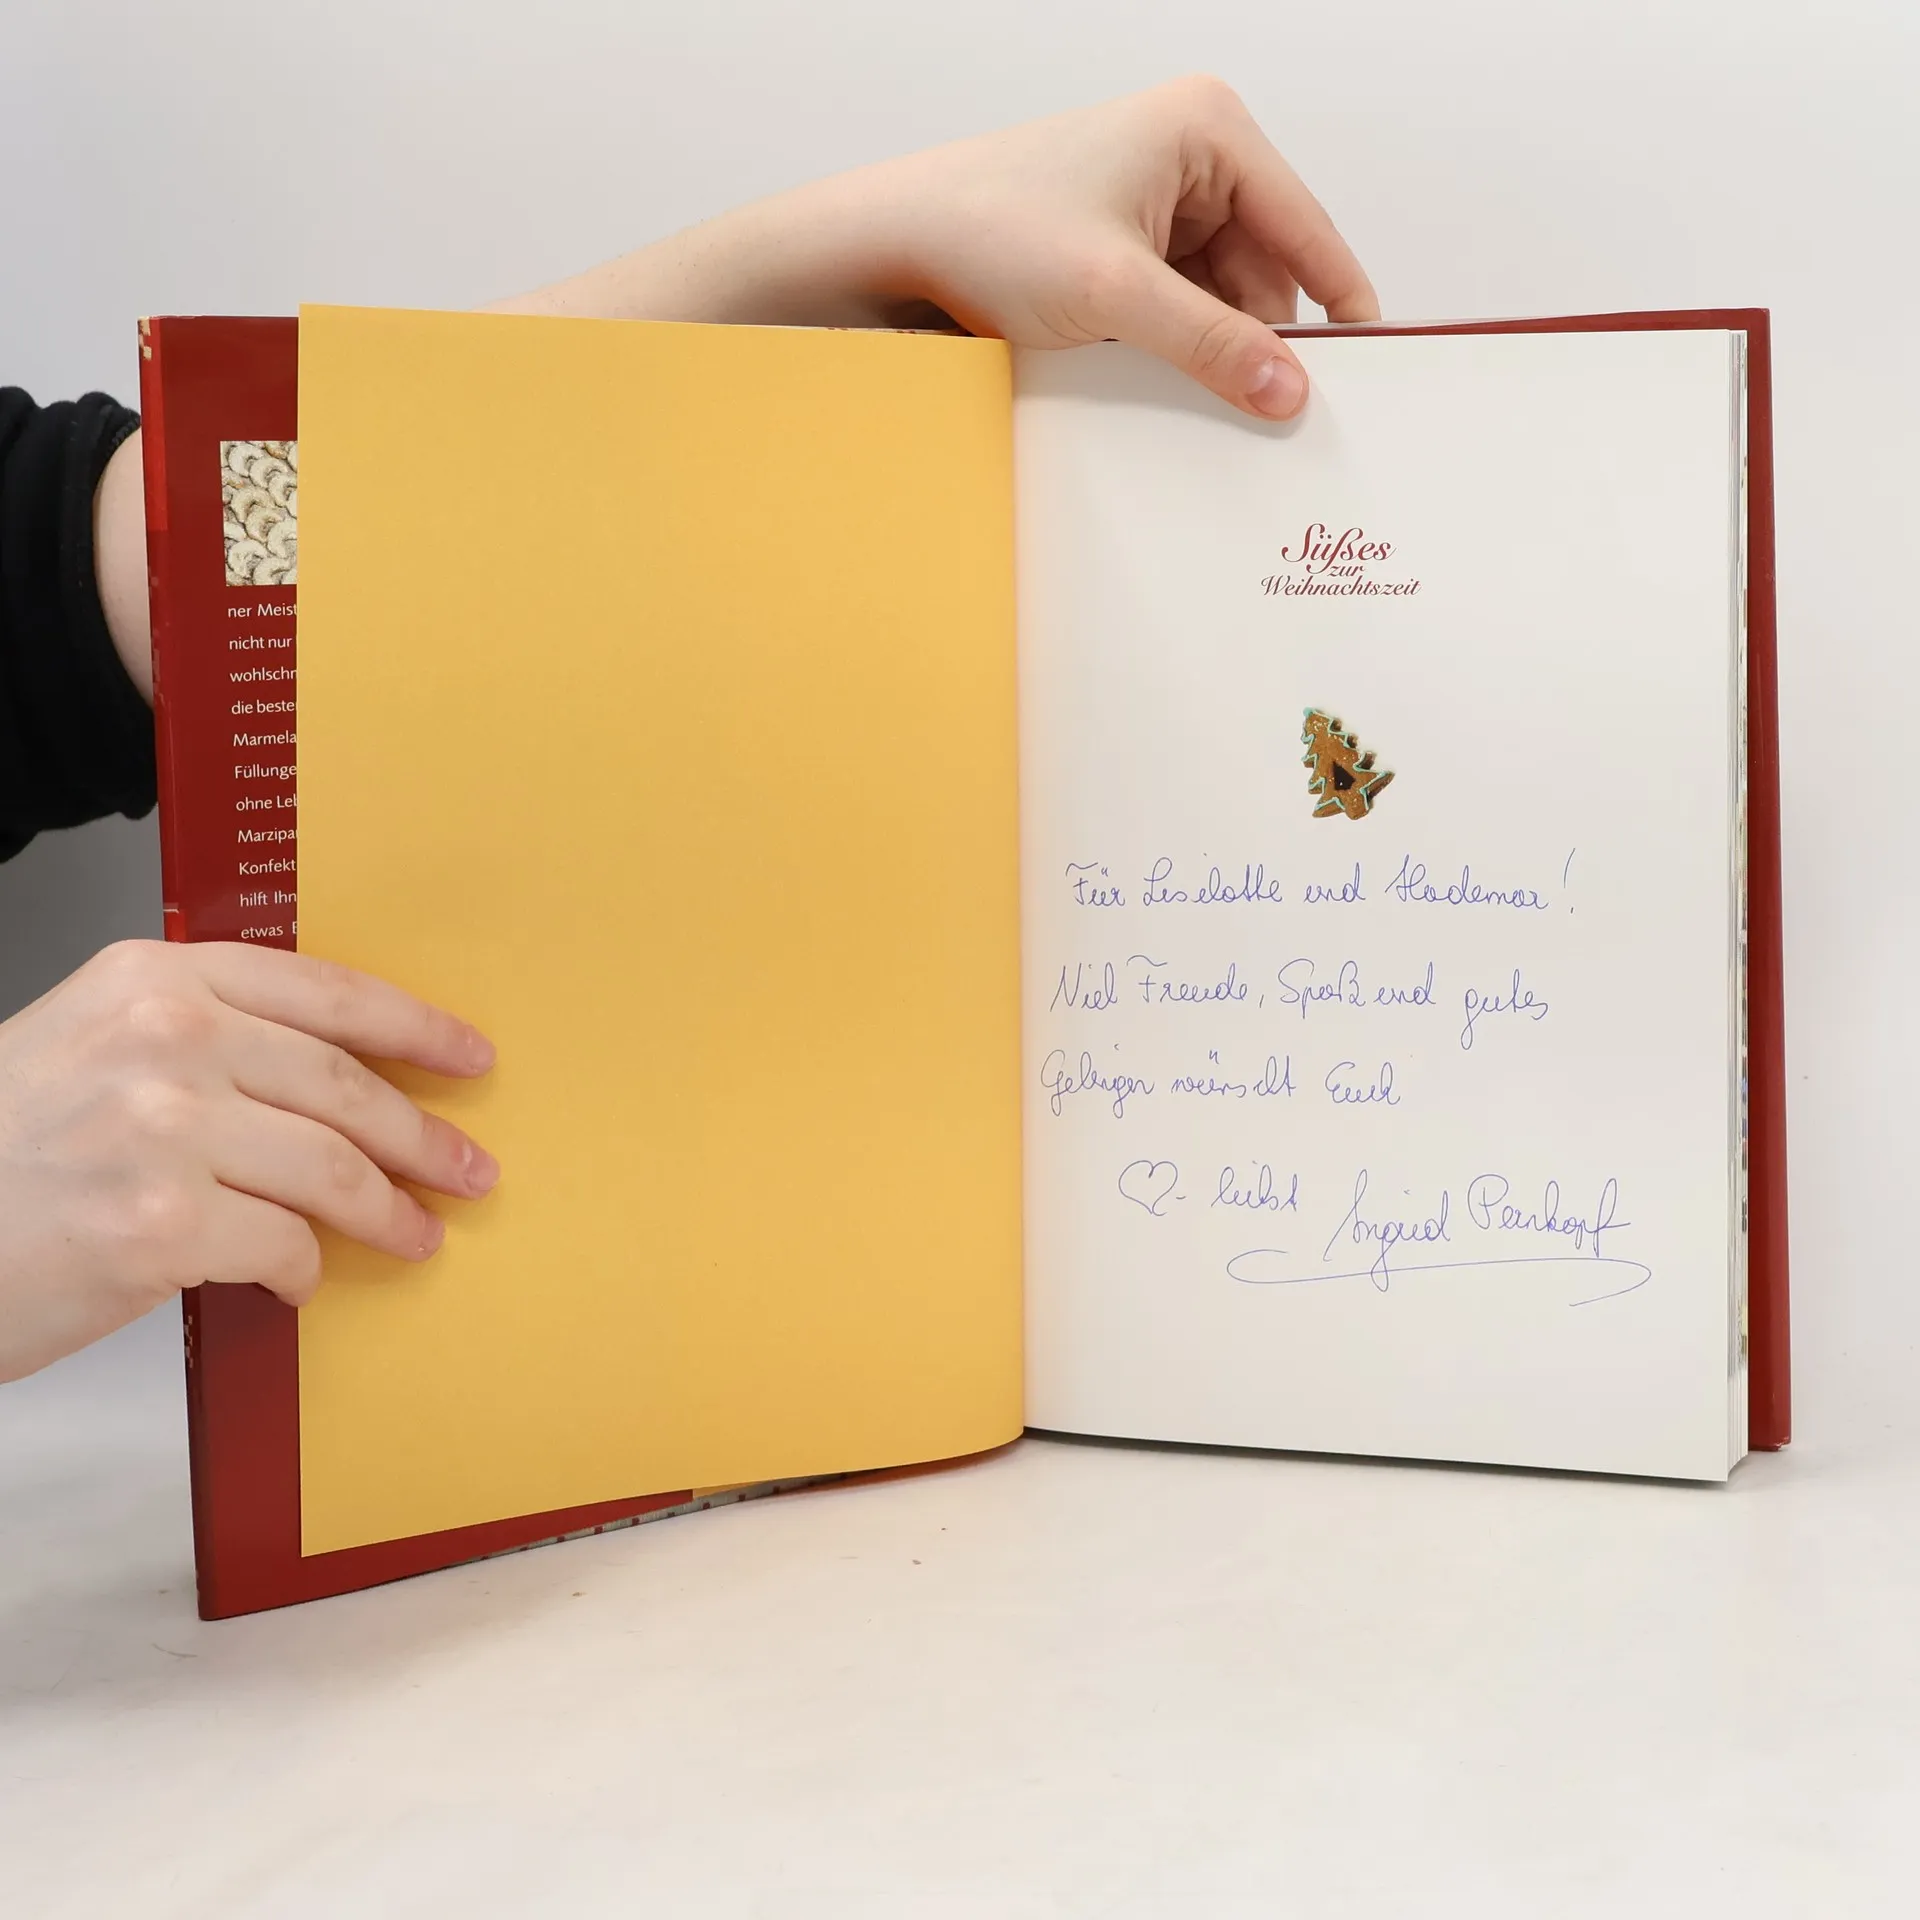 ner Meist
nicht nur
wohlschm
die beste
Marmela
Füllunge
ohne Leb
Marzipa
Konfekt
hilft Ihn
etwas
Süßes
zur
Weihnachtszeit
Für Liselotte und Hademar!
Viel Freude, Spaß und gutes
Gelingen wünscht Euch
♡-lichst Ingrid Pernkopf